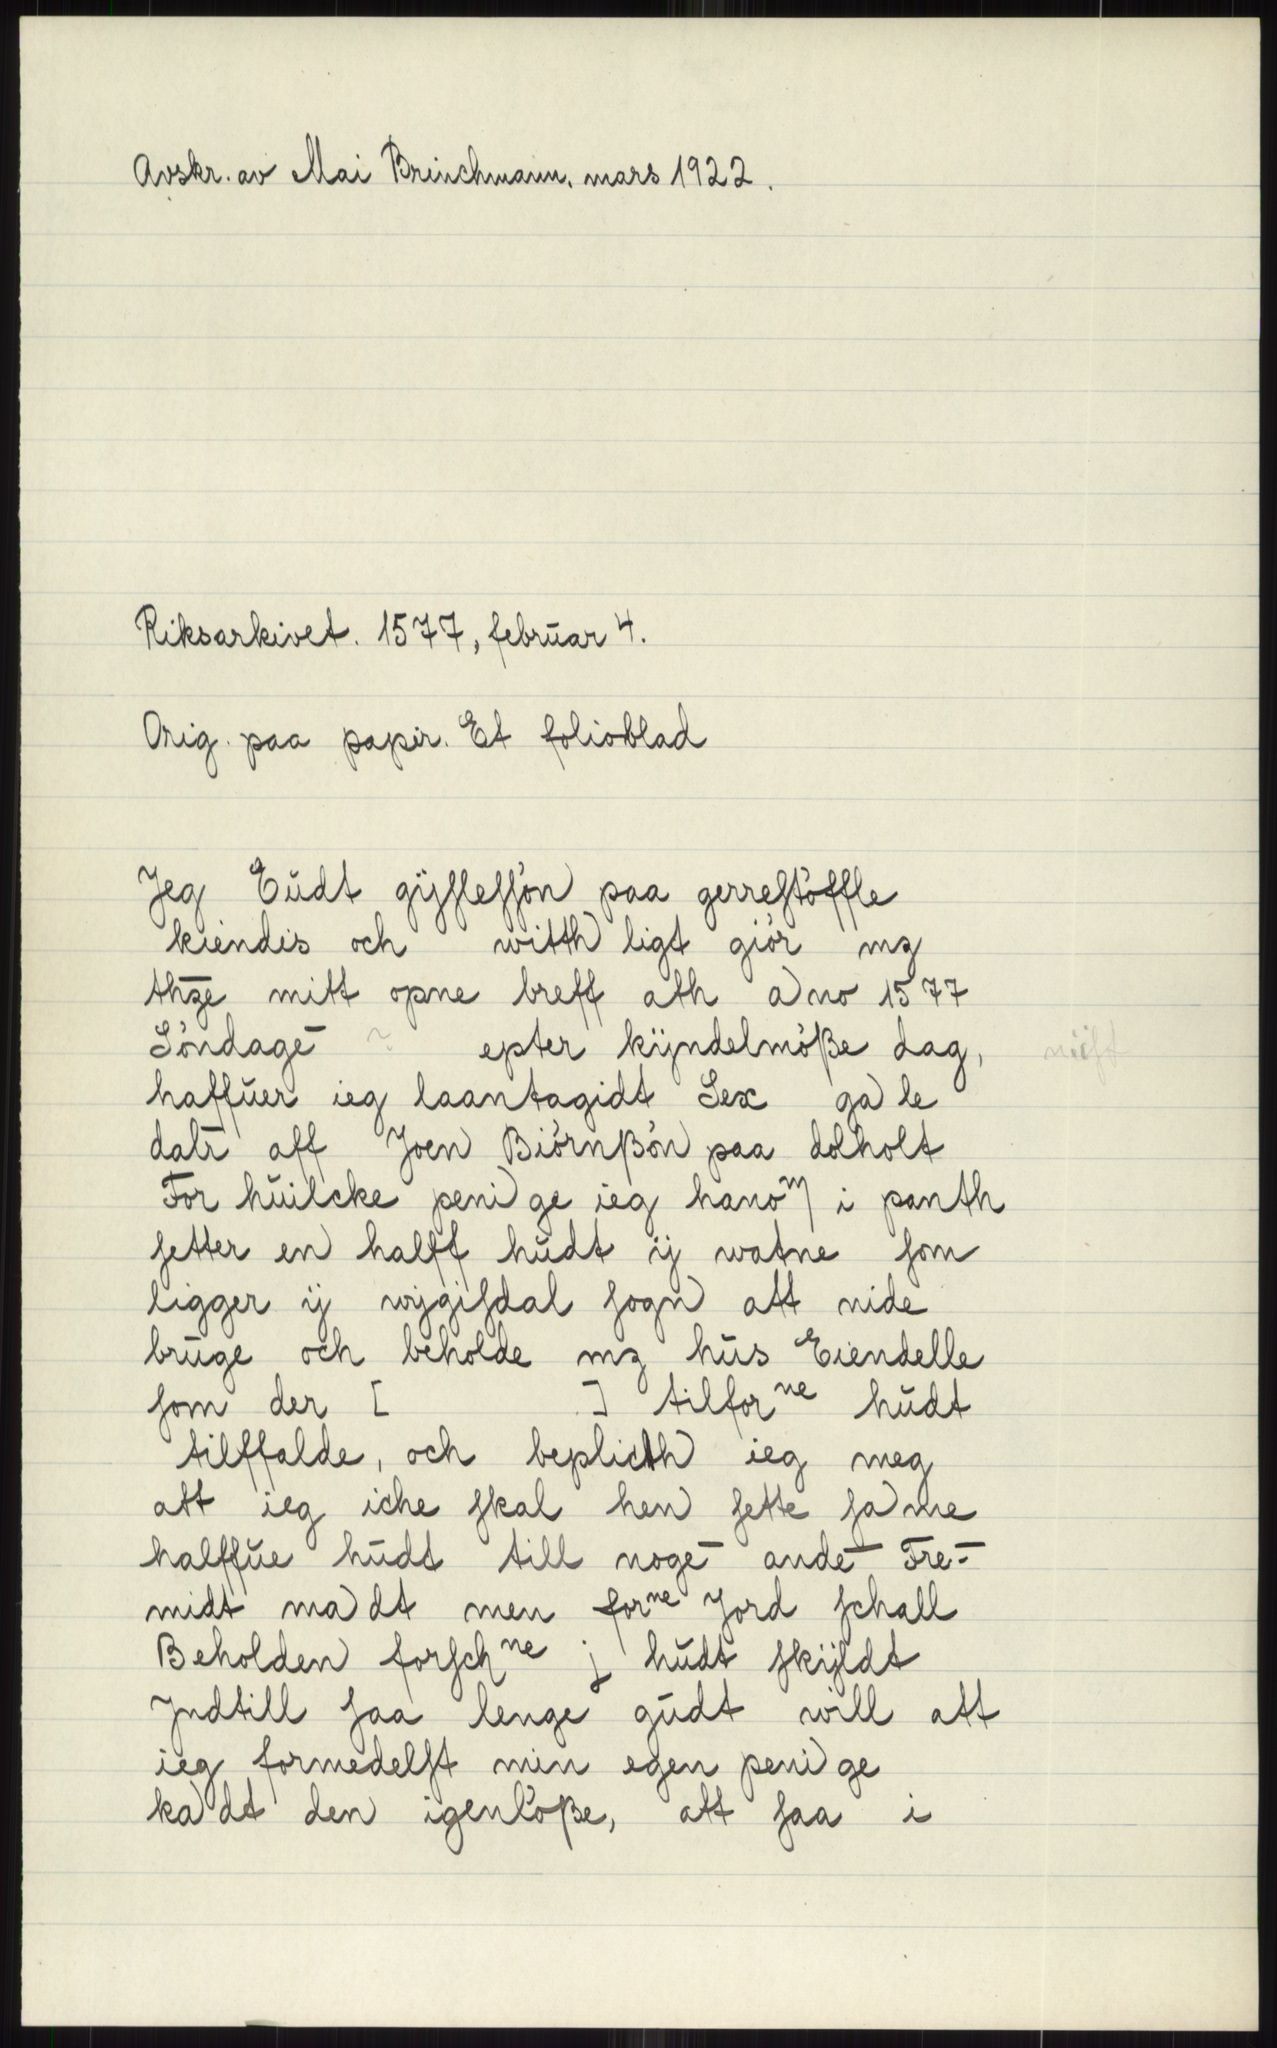 Avskr. av Mai Brinchmann, mars 1922.
Riksarkivet. 1577, februar 4.
Orig. paa papir. Et folioblad
Jeg Eŭdt gÿſleſſøn paa gerreſtøffle
kiendis och witth ligt giør mz
thz̄e mitt opne breff ath a no 1577
Søndage ̄ ? epter kÿndelmøße dag, nÿſt
haffŭer ieg laantagidt Sex ga le
dalr aff Joen Biørnßøn paa dolholt
For hŭilcke peni ge ieg hanoᵐ i panth
ſetter en halff hŭdt ij watne ſom
ligger ij wÿgiſdal ſogn att nide
brŭge och beholde mz hŭs Eiendelle
ſom der [ ] tilforⁿᵉ hŭdt
tilffalde, och beplicth ieg meg
att ieg iche ſkal hen ſette ſa me
halffŭe hŭdt till noge ̄ ande ̄ Fre ̄-
midt ma dt men forⁿᵉ Jord ſchall
Beholden forſchⁿᵉ j hŭdt ſkÿldt
Jndtill ſaa lenge gŭdt will att
ieg formedelſt min egen peni ge
ka dt den igenløße, att ſaa i